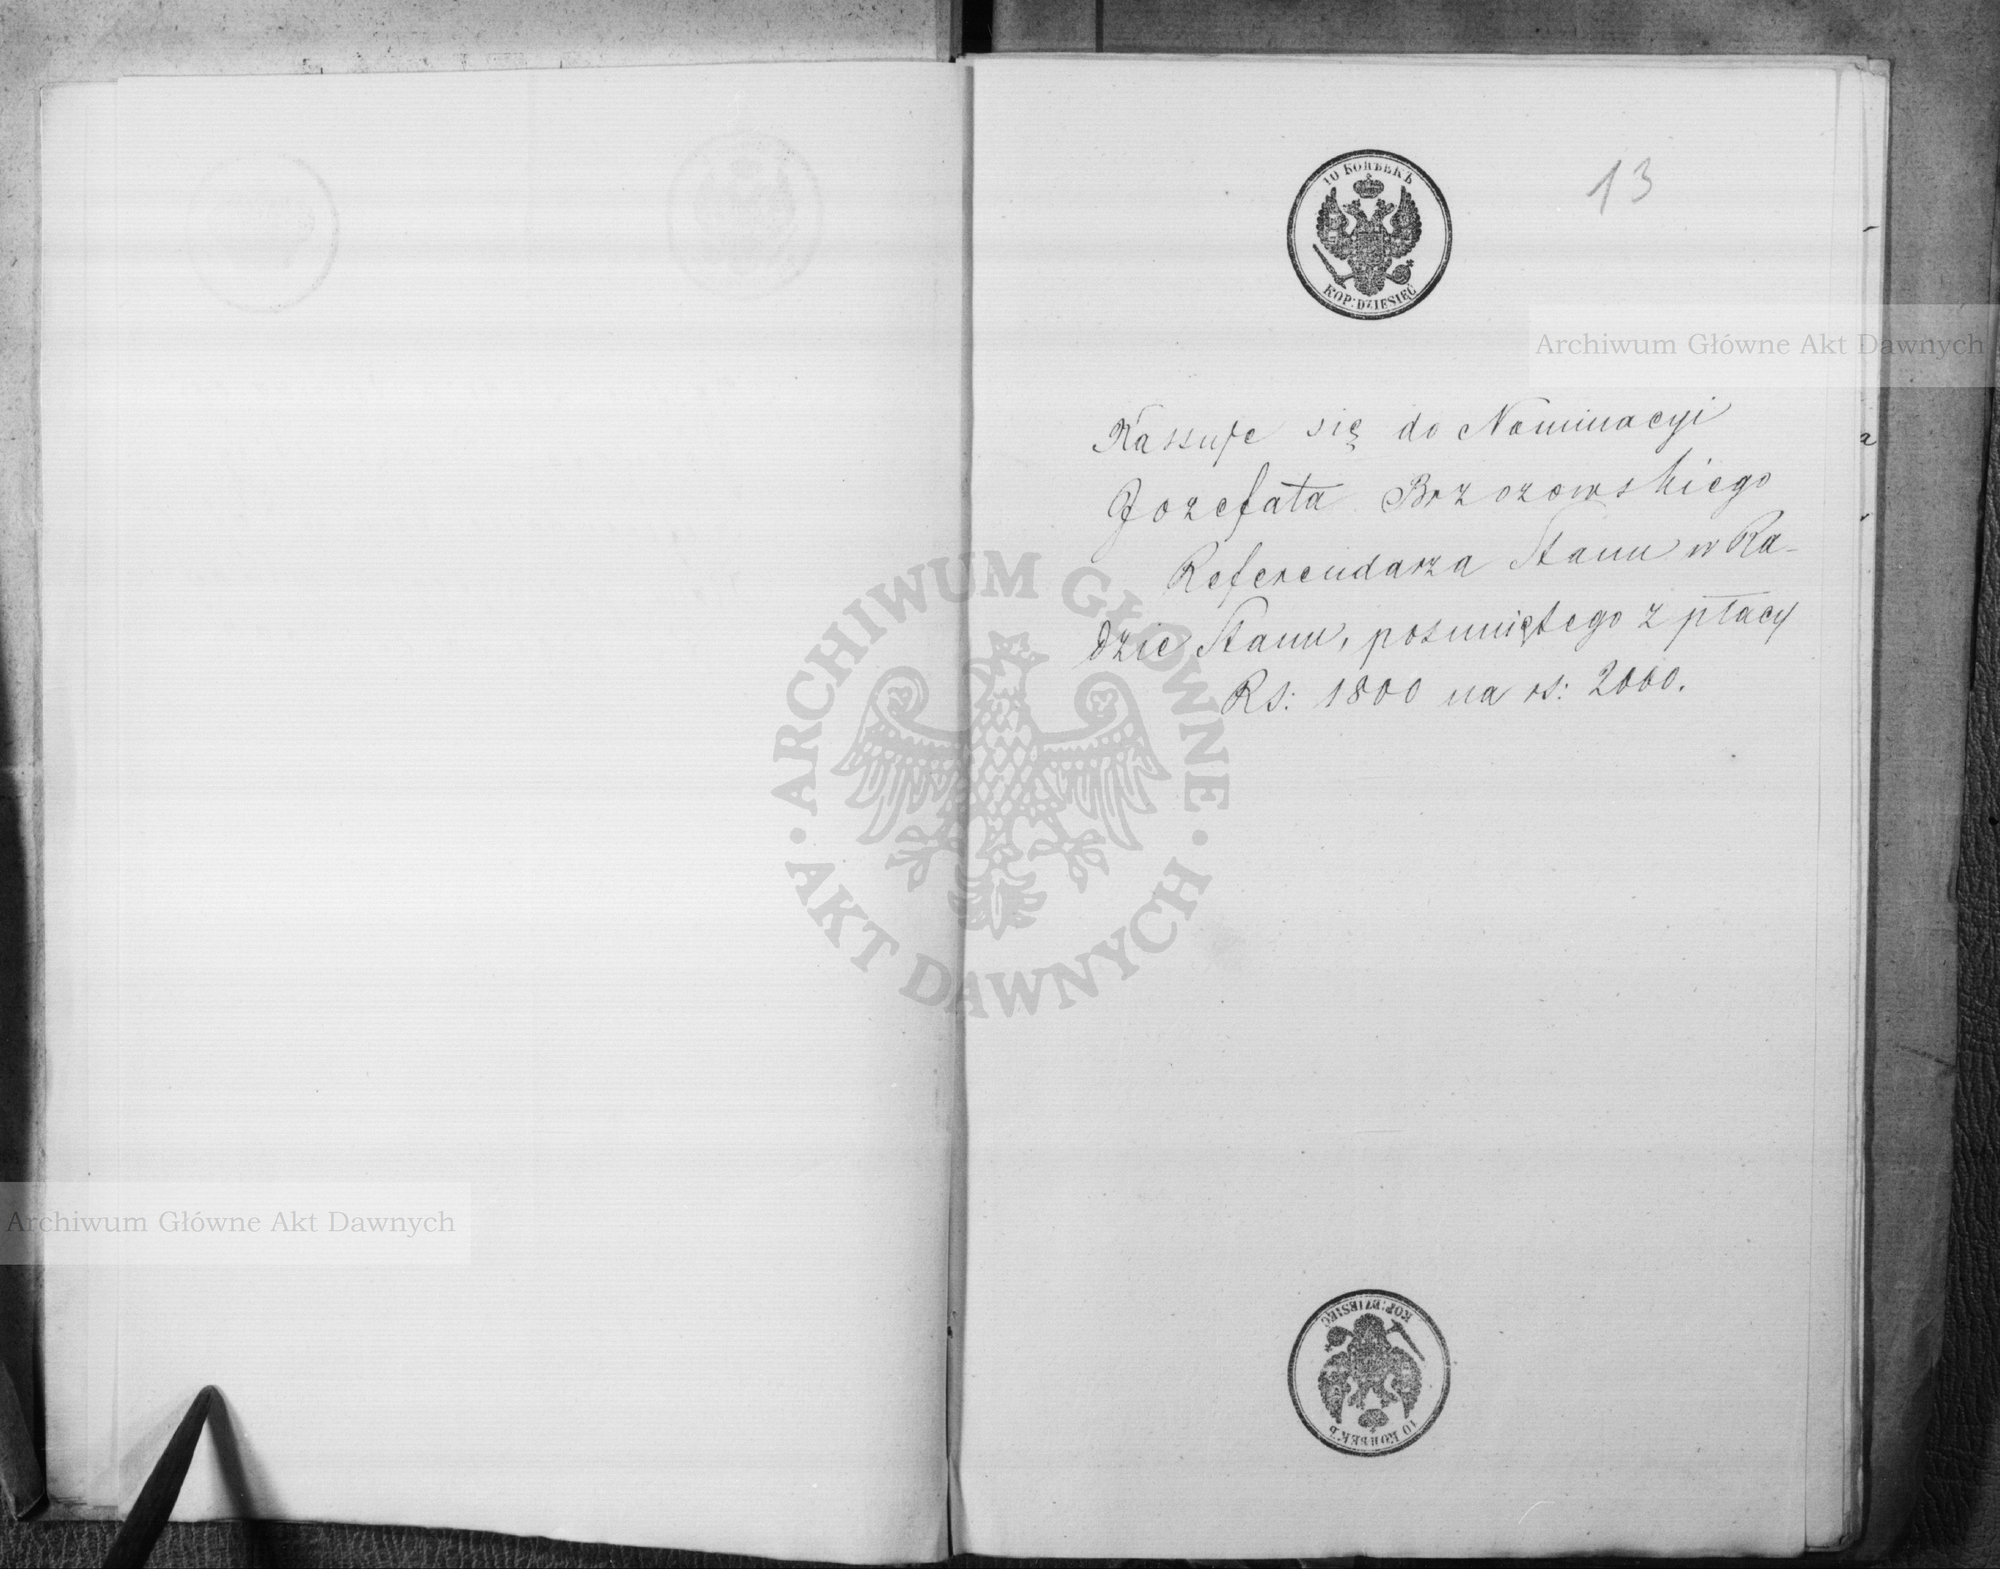 10 КОПѢЕКЪ
KOP: DZIESIĘĆ
13
Archiwum Główne Akt Dawnych
Kassuje się do Nominacyi
Jozefata Brzozowskiego
Referendarza Stanu w Ra-
dzie Stanu, posuniętego z płacy
Rs: 1800 na rs: 2000.
ARCHIWUM GŁÓWNE
AKT DAWNYCH
Archiwum Główne Akt Dawnych
KOP: DZIESIĘĆ
10 КОПѢЕКЪ